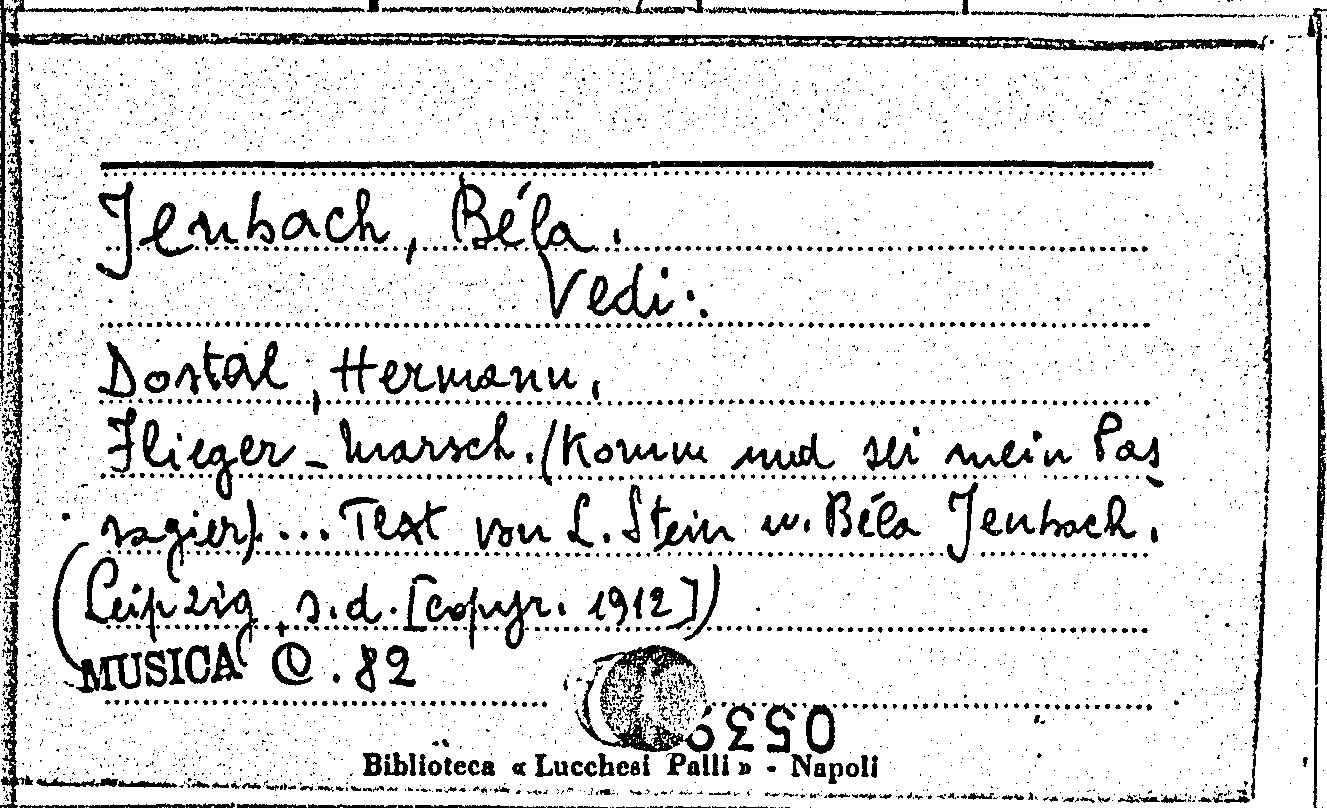 Jenbach, Béla.
Vedi:
Dostal, Hermann.
Flieger-Marsch. (Komm und sei mein Pas
sagier)... Text von L. Stein u. Béla Jenbach.
(Leipzig, s.d. [copyr. 1912])
MUSICA Q. 82
Biblioteca « Lucchesi Palli » - Napoli